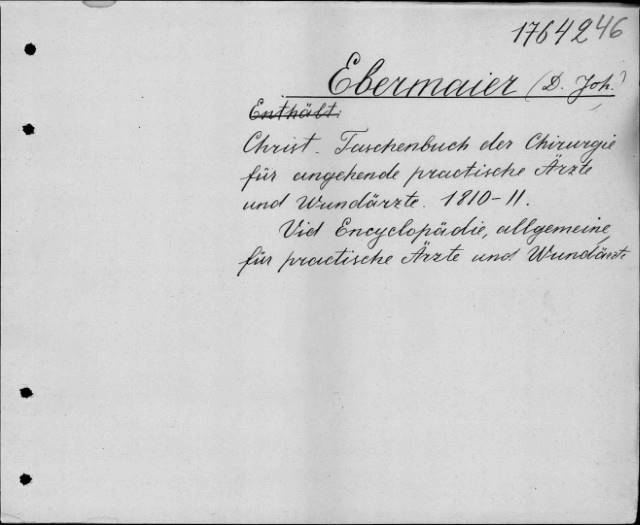 1764246
Ebermaier (D. Joh.)
Enthält:
Christ. Taschenbuch der Chirurgie
für angehende practische Ärzte
und Wundärzte. 1810-11.
Vid Encyclopädie, allgemeine,
für practische Ärzte und Wundärzte